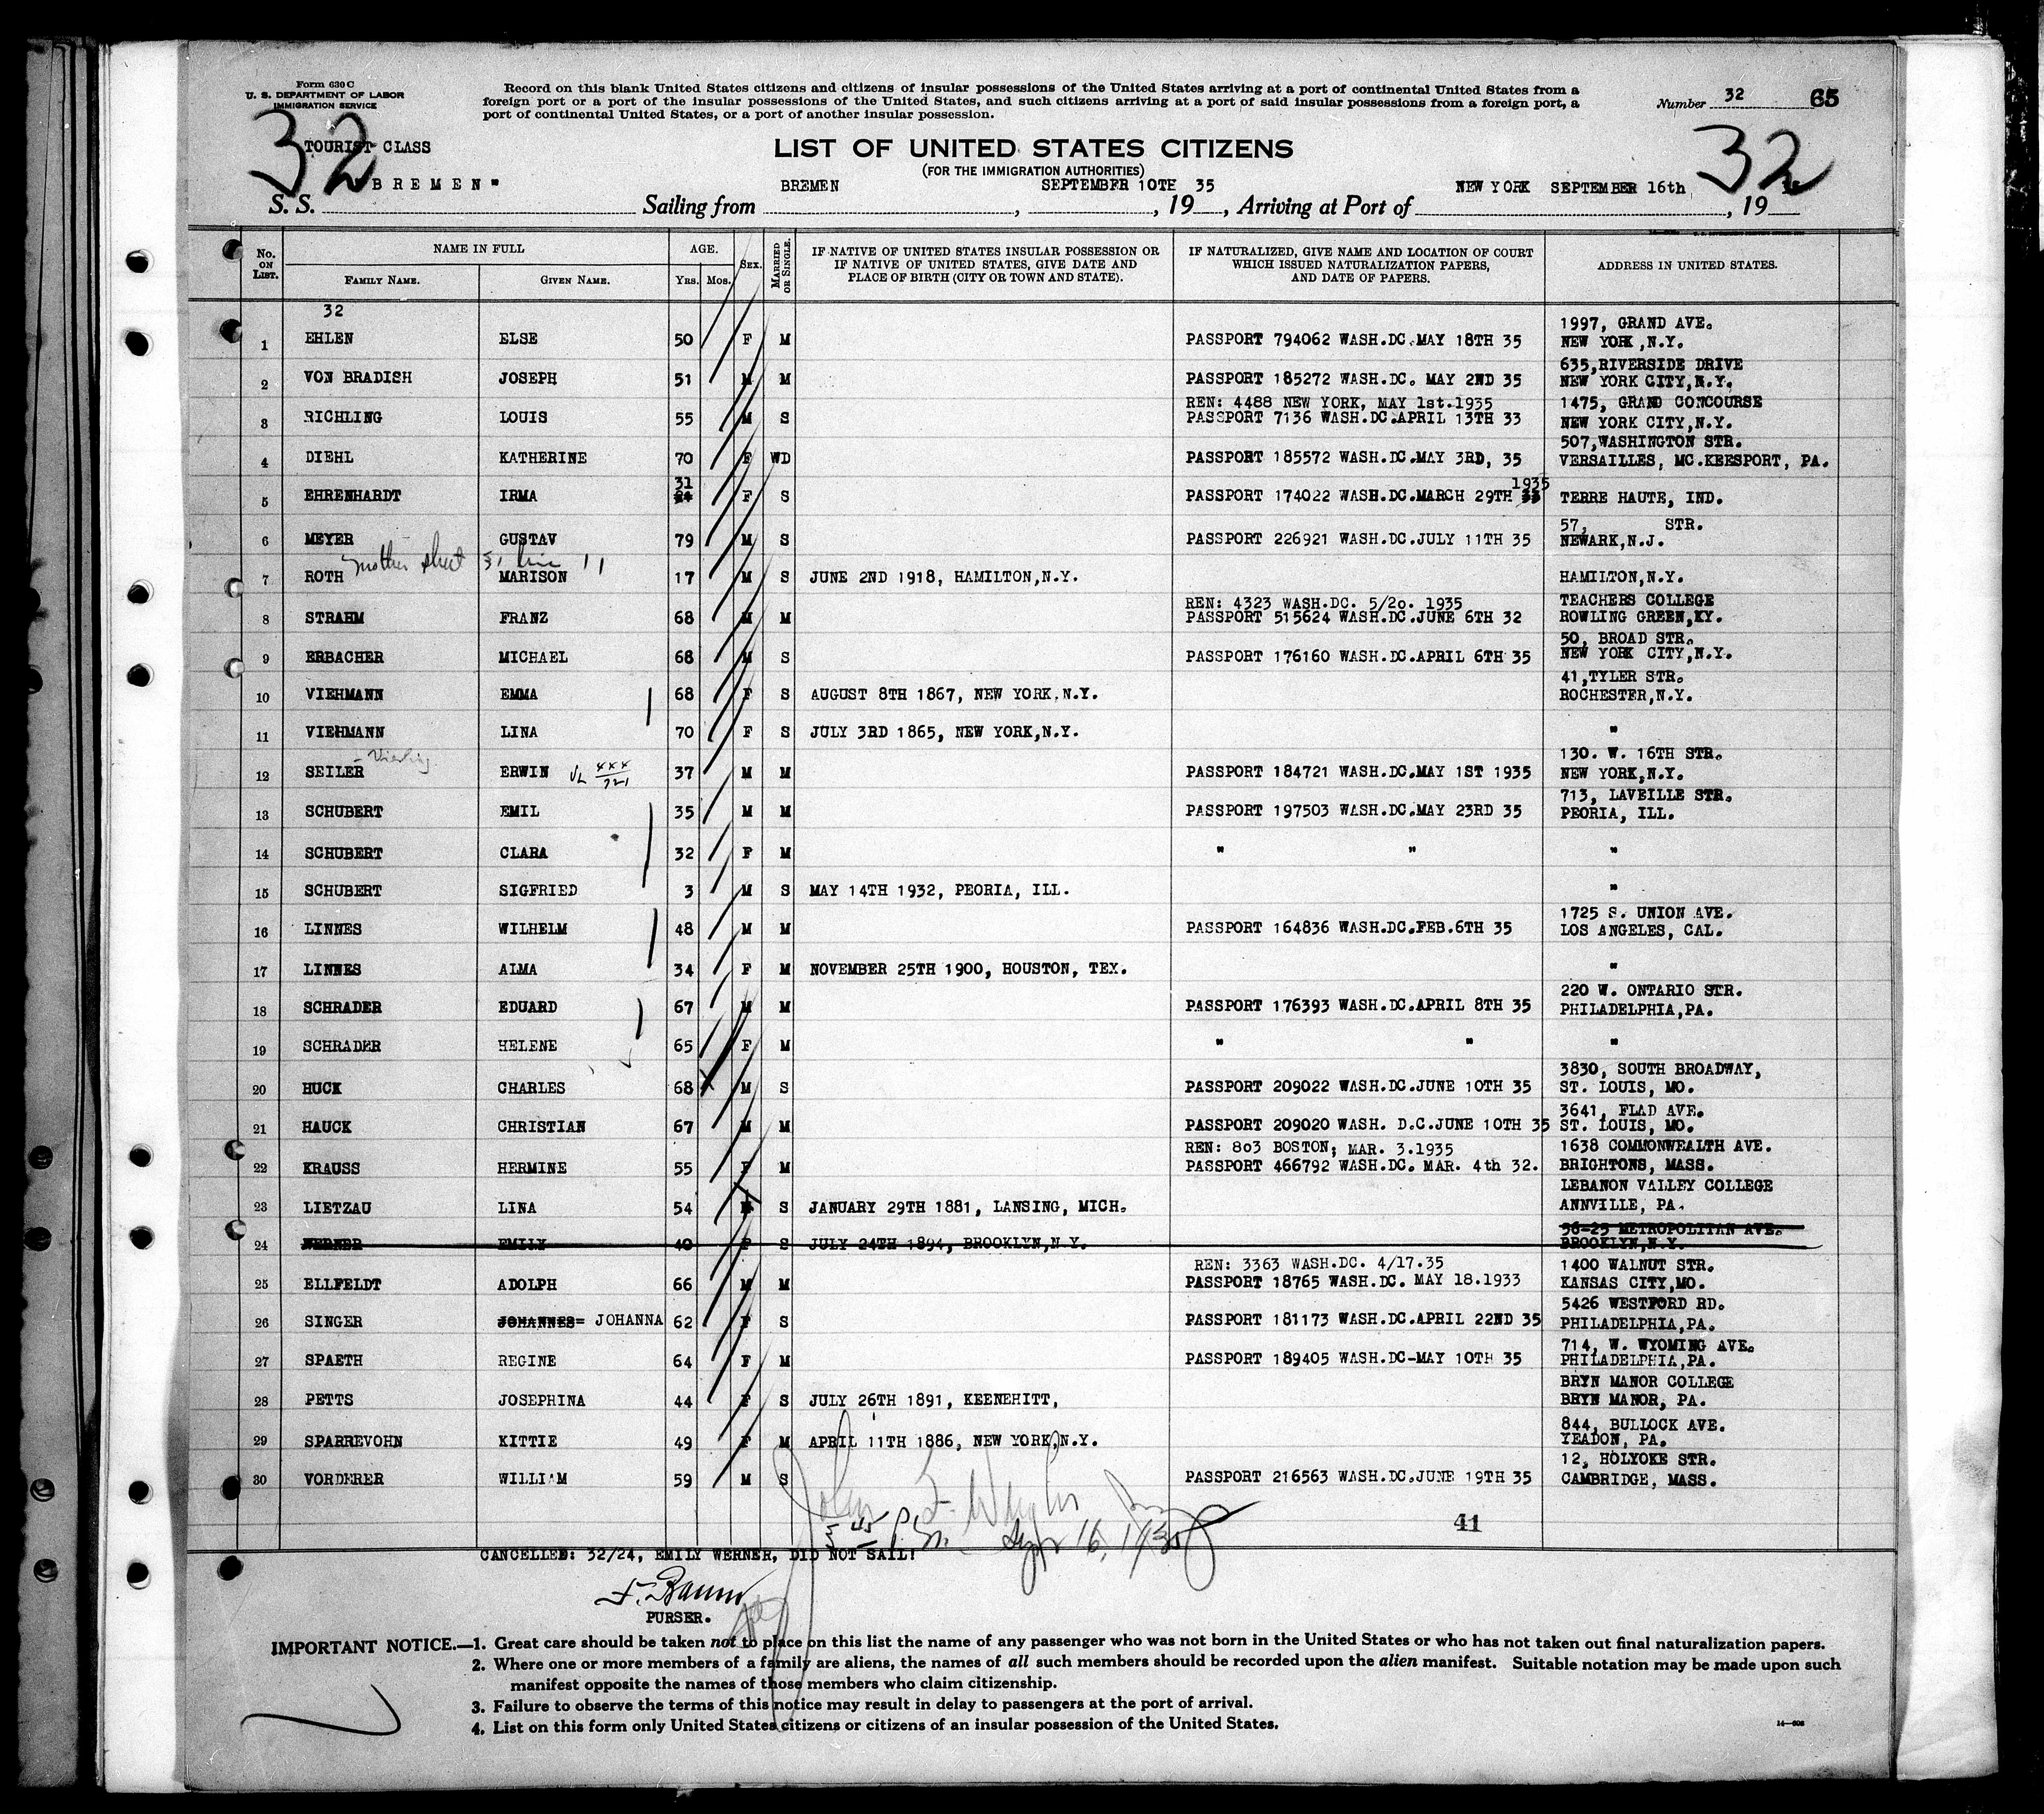 Form 630 C
U. S. DEPARTMENT OF LABOR
IMMIGRATION SERVICE
Record on this blank United States citizens and citizens of insular possessions of the United States arriving at a port of continental United States from a
foreign port or a port of the insular possessions of the United States, and such citizens arriving at a port of said insular possessions from a foreign port, a
port of continental United States, or a port of another insular possession.
Number 32 65
32 TOURIST CLASS
LIST OF UNITED STATES CITIZENS 32
(FOR THE IMMIGRATION AUTHORITIES)
S. S. BREMEN" Sailing from BREMEN, SEPTEMBER 10TH, 19 35, Arriving at Port of NEW YORK SEPTEMBER 16th, 19
No. ON LIST. NAME IN FULL FAMILY NAME. GIVEN NAME. AGE. Yrs. Mos. SEX. MARRIED OR SINGLE. IF NATIVE OF UNITED STATES INSULAR POSSESSION OR IF NATIVE OF UNITED STATES, GIVE DATE AND PLACE OF BIRTH (CITY OR TOWN AND STATE). IF NATURALIZED, GIVE NAME AND LOCATION OF COURT WHICH ISSUED NATURALIZATION PAPERS, AND DATE OF PAPERS. ADDRESS IN UNITED STATES.
32
1 EHLEN ELSE 50 F M PASSPORT 794062 WASH.DC.MAY 18TH 35 1997, GRAND AVE. NEW YORK,N.Y.
2 VON BRADISH JOSEPH 51 M M PASSPORT 185272 WASH.DC. MAY 2ND 35 635,RIVERSIDE DRIVE NEW YORK CITY,N.Y.
3 RICHLING LOUIS 55 M S REN: 4488 NEW YORK, MAY 1st.1935 PASSPORT 7136 WASH.DC.APRIL 13TH 33 1475, GRAND CONCOURSE NEW YORK CITY,N.Y.
4 DIEHL KATHERINE 70 F WD PASSPORT 185572 WASH.DC.MAY 3RD, 35 507,WASHINGTON STR. VERSAILLES, MC.KEESPORT, PA.
5 EHRENHARDT IRMA 31 F S PASSPORT 174022 WASH.DC.MARCH 29TH 1935 TERRE HAUTE, IND.
6 MEYER GUSTAV 79 M S PASSPORT 226921 WASH.DC.JULY 11TH 35 57, STR. NEWARK,N.J.
mother sheet 31 line 11
7 ROTH MARISON 17 M S JUNE 2ND 1918, HAMILTON,N.Y. HAMILTON,N.Y.
8 STRAHM FRANZ 68 M M REN: 4323 WASH.DC. 5/20. 1935 PASSPORT 515624 WASH.DC.JUNE 6TH 32 TEACHERS COLLEGE ROWLING GREEN,KY.
9 ERBACHER MICHAEL 68 M S PASSPORT 176160 WASH.DC.APRIL 6TH 35 50, BROAD STR. NEW YORK CITY,N.Y.
10 VIEHMANN EMMA 68 F S AUGUST 8TH 1867, NEW YORK,N.Y. 41,TYLER STR. ROCHESTER,N.Y.
11 VIEHMANN LINA 70 F S JULY 3RD 1865, NEW YORK,N.Y. "
12 SEILER ERWIN 37 M M PASSPORT 184721 WASH.DC.MAY 1ST 1935 130. W. 16TH STR. NEW YORK,N.Y.
13 SCHUBERT EMIL 35 M M PASSPORT 197503 WASH.DC.MAY 23RD 35 713, LAVEILLE STR. PEORIA, ILL.
14 SCHUBERT CLARA 32 F M " " "
15 SCHUBERT SIGFRIED 3 M S MAY 14TH 1932, PEORIA, ILL. "
16 LINNES WILHELM 48 M M PASSPORT 164836 WASH.DC.FEB.6TH 35 1725 S. UNION AVE. LOS ANGELES, CAL.
17 LINNES ALMA 34 F M NOVEMBER 25TH 1900, HOUSTON, TEX. "
18 SCHRADER EDUARD 67 M M PASSPORT 176393 WASH.DC.APRIL 8TH 35 220 W. ONTARIO STR. PHILADELPHIA,PA.
19 SCHRADER HELENE 65 F M " " "
20 HUCK CHARLES 68 M S PASSPORT 209022 WASH.DC.JUNE 10TH 35 3830, SOUTH BROADWAY, ST. LOUIS, MO.
21 HAUCK CHRISTIAN 67 M M PASSPORT 209020 WASH. D.C.JUNE 10TH 35 3641, FLAD AVE. ST. LOUIS, MO.
22 KRAUSS HERMINE 55 F M REN: 803 BOSTON; MAR. 3.1935 PASSPORT 466792 WASH.DC. MAR. 4th 32. 1638 COMMONWEALTH AVE. BRIGHTONS, MASS.
23 LIETZAU LINA 54 F S JANUARY 29TH 1881, LANSING, MICH. LEBANON VALLEY COLLEGE ANNVILLE, PA.
24 WERNER EMILY 40 F S JULY 24TH 1894, BROOKLYN,N.Y. 56-25 METROPOLITAN AVE. BROOKLYN,N.Y.
25 ELLFELDT ADOLPH 66 M M REN: 3363 WASH.DC. 4/17.35 PASSPORT 18765 WASH.DC. MAY 18.1933 1400 WALNUT STR. KANSAS CITY,MO.
26 SINGER JOHANNES= JOHANNA 62 F S PASSPORT 181173 WASH.DC.APRIL 22ND 35 5426 WESTFORD RD. PHILADELPHIA,PA.
27 SPAETH REGINE 64 F M PASSPORT 189405 WASH.DC-MAY 10TH 35 714, W. WYOMING AVE. PHILADELPHIA,PA.
28 PETTS JOSEPHINA 44 F S JULY 26TH 1891, KEENEHITT, BRYN MANOR COLLEGE BRYN MANOR, PA.
29 SPARREVOHN KITTIE 49 F M APRIL 11TH 1886, NEW YORK,N.Y. 844, BULLOCK AVE. YEADON, PA.
30 VORDERER WILLIAM 59 M S PASSPORT 216563 WASH.DC.JUNE 19TH 35 12, HOLYOKE STR. CAMBRIDGE, MASS.
John
Sept 16, 1935
41
CANCELLED: 32/24, EMILY WERNER, DID NOT SAIL!
PURSER.
IMPORTANT NOTICE.—1. Great care should be taken not to place on this list the name of any passenger who was not born in the United States or who has not taken out final naturalization papers.
2. Where one or more members of a family are aliens, the names of all such members should be recorded upon the alien manifest. Suitable notation may be made upon such
manifest opposite the names of those members who claim citizenship.
3. Failure to observe the terms of this notice may result in delay to passengers at the port of arrival.
4. List on this form only United States citizens or citizens of an insular possession of the United States.